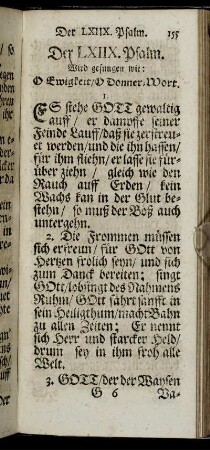 Der LXIIX. Psalm. 155
Der LXIIX. Psalm.
Wird gesungen wie:
O Ewigkeit/ O Donner-Wort.
1.
ES stehe GOTT gewaltig
auff/ er dampffe seiner
Feinde Lauff/ daß sie zerstreu-
et werden/ und die ihn hassen/
für ihm fliehn/ er lasse sie für-
über ziehn/ gleich wie den
Rauch auff Erden/ kein
Wachs kan in der Glut be-
stehn/ so muß der Böß auch
untergehn.
2. Die Frommen müssen
sich erfreun/ für GOtt von
Hertzen frolich seyn/ und sich
zum Danck bereiten; singt
GOtt/ lobsingt des Nahmens
Ruhm/ GOtt fährt sanfft in
sein Heiligthum/ macht Bahn
zu allen Zeiten; Er nennt
sich Herr und starcker Held/
drum sey in ihm froh alle
Welt.
3. GOTT/ der der Waysen
G 6 Va-